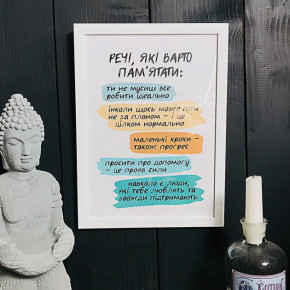 РЕЧІ, ЯКІ ВАРТО
ПАМ'ЯТАТИ:
ти не мусиш все
робити ідеально
інколи щось може йти
не за планом – і це
цілком нормально
маленькі кроки –
також прогрес
просити про допомогу
– це прояв сили
навколо є люди,
які тебе люблять та
завжди підтримають